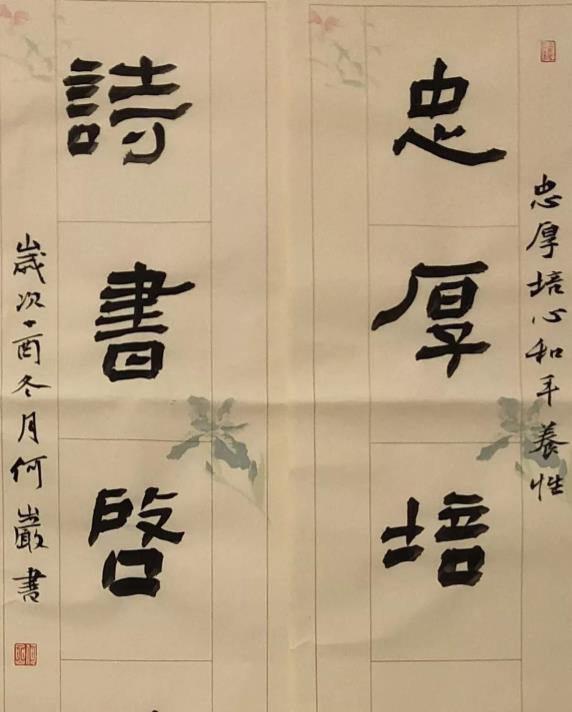 忠厚培心和平養性
忠厚培
詩書啓
歲次丁酉冬月何巖書